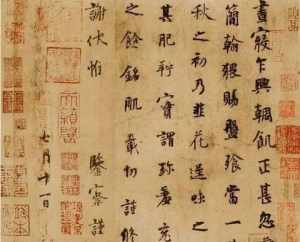 晝寢乍興輖飢正甚忽
簡翰猥賜盤飧當一
秋之初乃韭花逞味之
其肥羜實謂珍羞充
之餘銘肌載切謹修
謝伏惟 鑒察謹
七月十一日